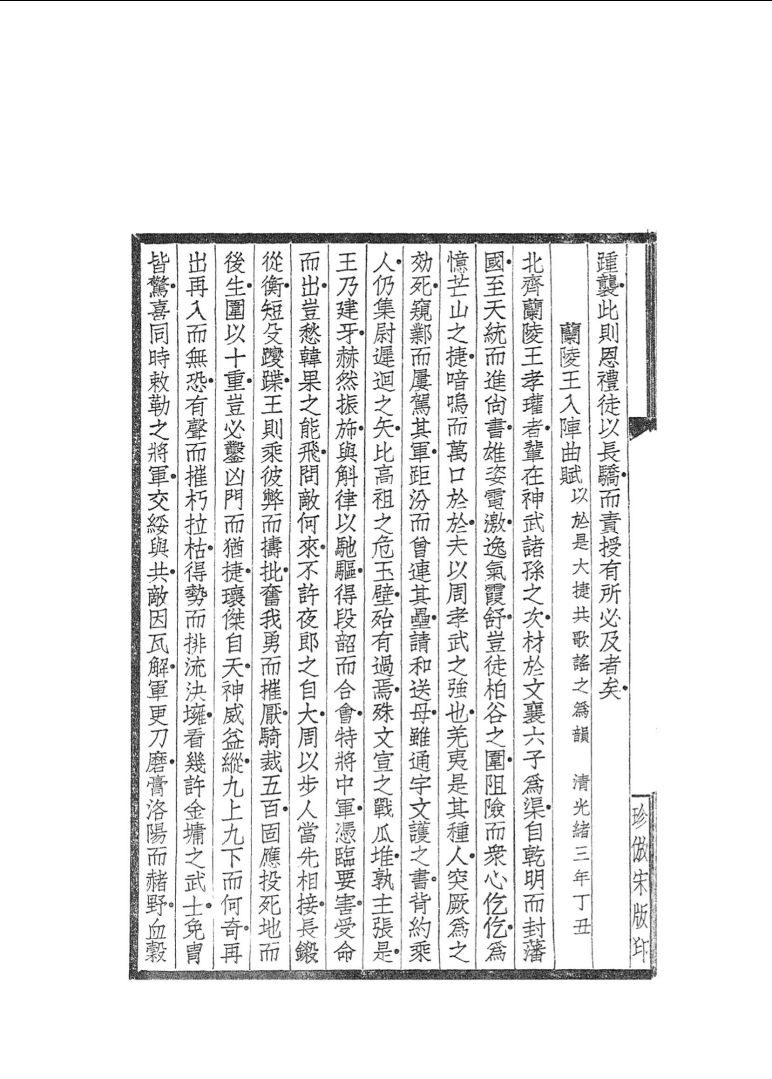 踵襲此則恩禮徒以長驕而責授有所必及者矣
蘭陵王入陣曲賦以於是大捷共歌謠之為韻 清光緒三年丁丑
北齊蘭陵王孝瓘者輩在神武諸孫之次材於文襄六子為渠自乾明而封藩
國至天統而進尙書雄姿電激逸氣霞舒豈徒柏谷之圍阻險而衆心仡仡為
憶芒山之捷喑嗚而萬口於於夫以周孝武之強也羌夷是其種人突厥為之
効死窺鄴而屢駕其軍距汾而曾連其壘請和送母雖通宇文護之書背約乘
人仍集尉遲迴之矢比高祖之危玉壁殆有過焉殊文宣之戰瓜堆孰主張是
王乃建牙赫然振斾與斛律以馳驅得段韶而合會特將中軍憑臨要害受命
而出豈愁韓果之能飛問敵何來不許夜郎之自大周以步人當先相接長鎩
從衡短殳躞蹀王則乘彼弊而擣批奮我勇而摧厭騎裁五百固應投死地而
後生圍以十重豈必鑿凶門而猶捷瓌傑自天神威益縱九上九下而何奇再
出再入而無恐有聲而摧朽拉枯得勢而排流決壅看幾許金墉之武士免冑
皆驚喜同時敕勒之將軍交綏與共敵因瓦解軍更刀磨膏洛陽而赭野血穀
珍倣宋版印